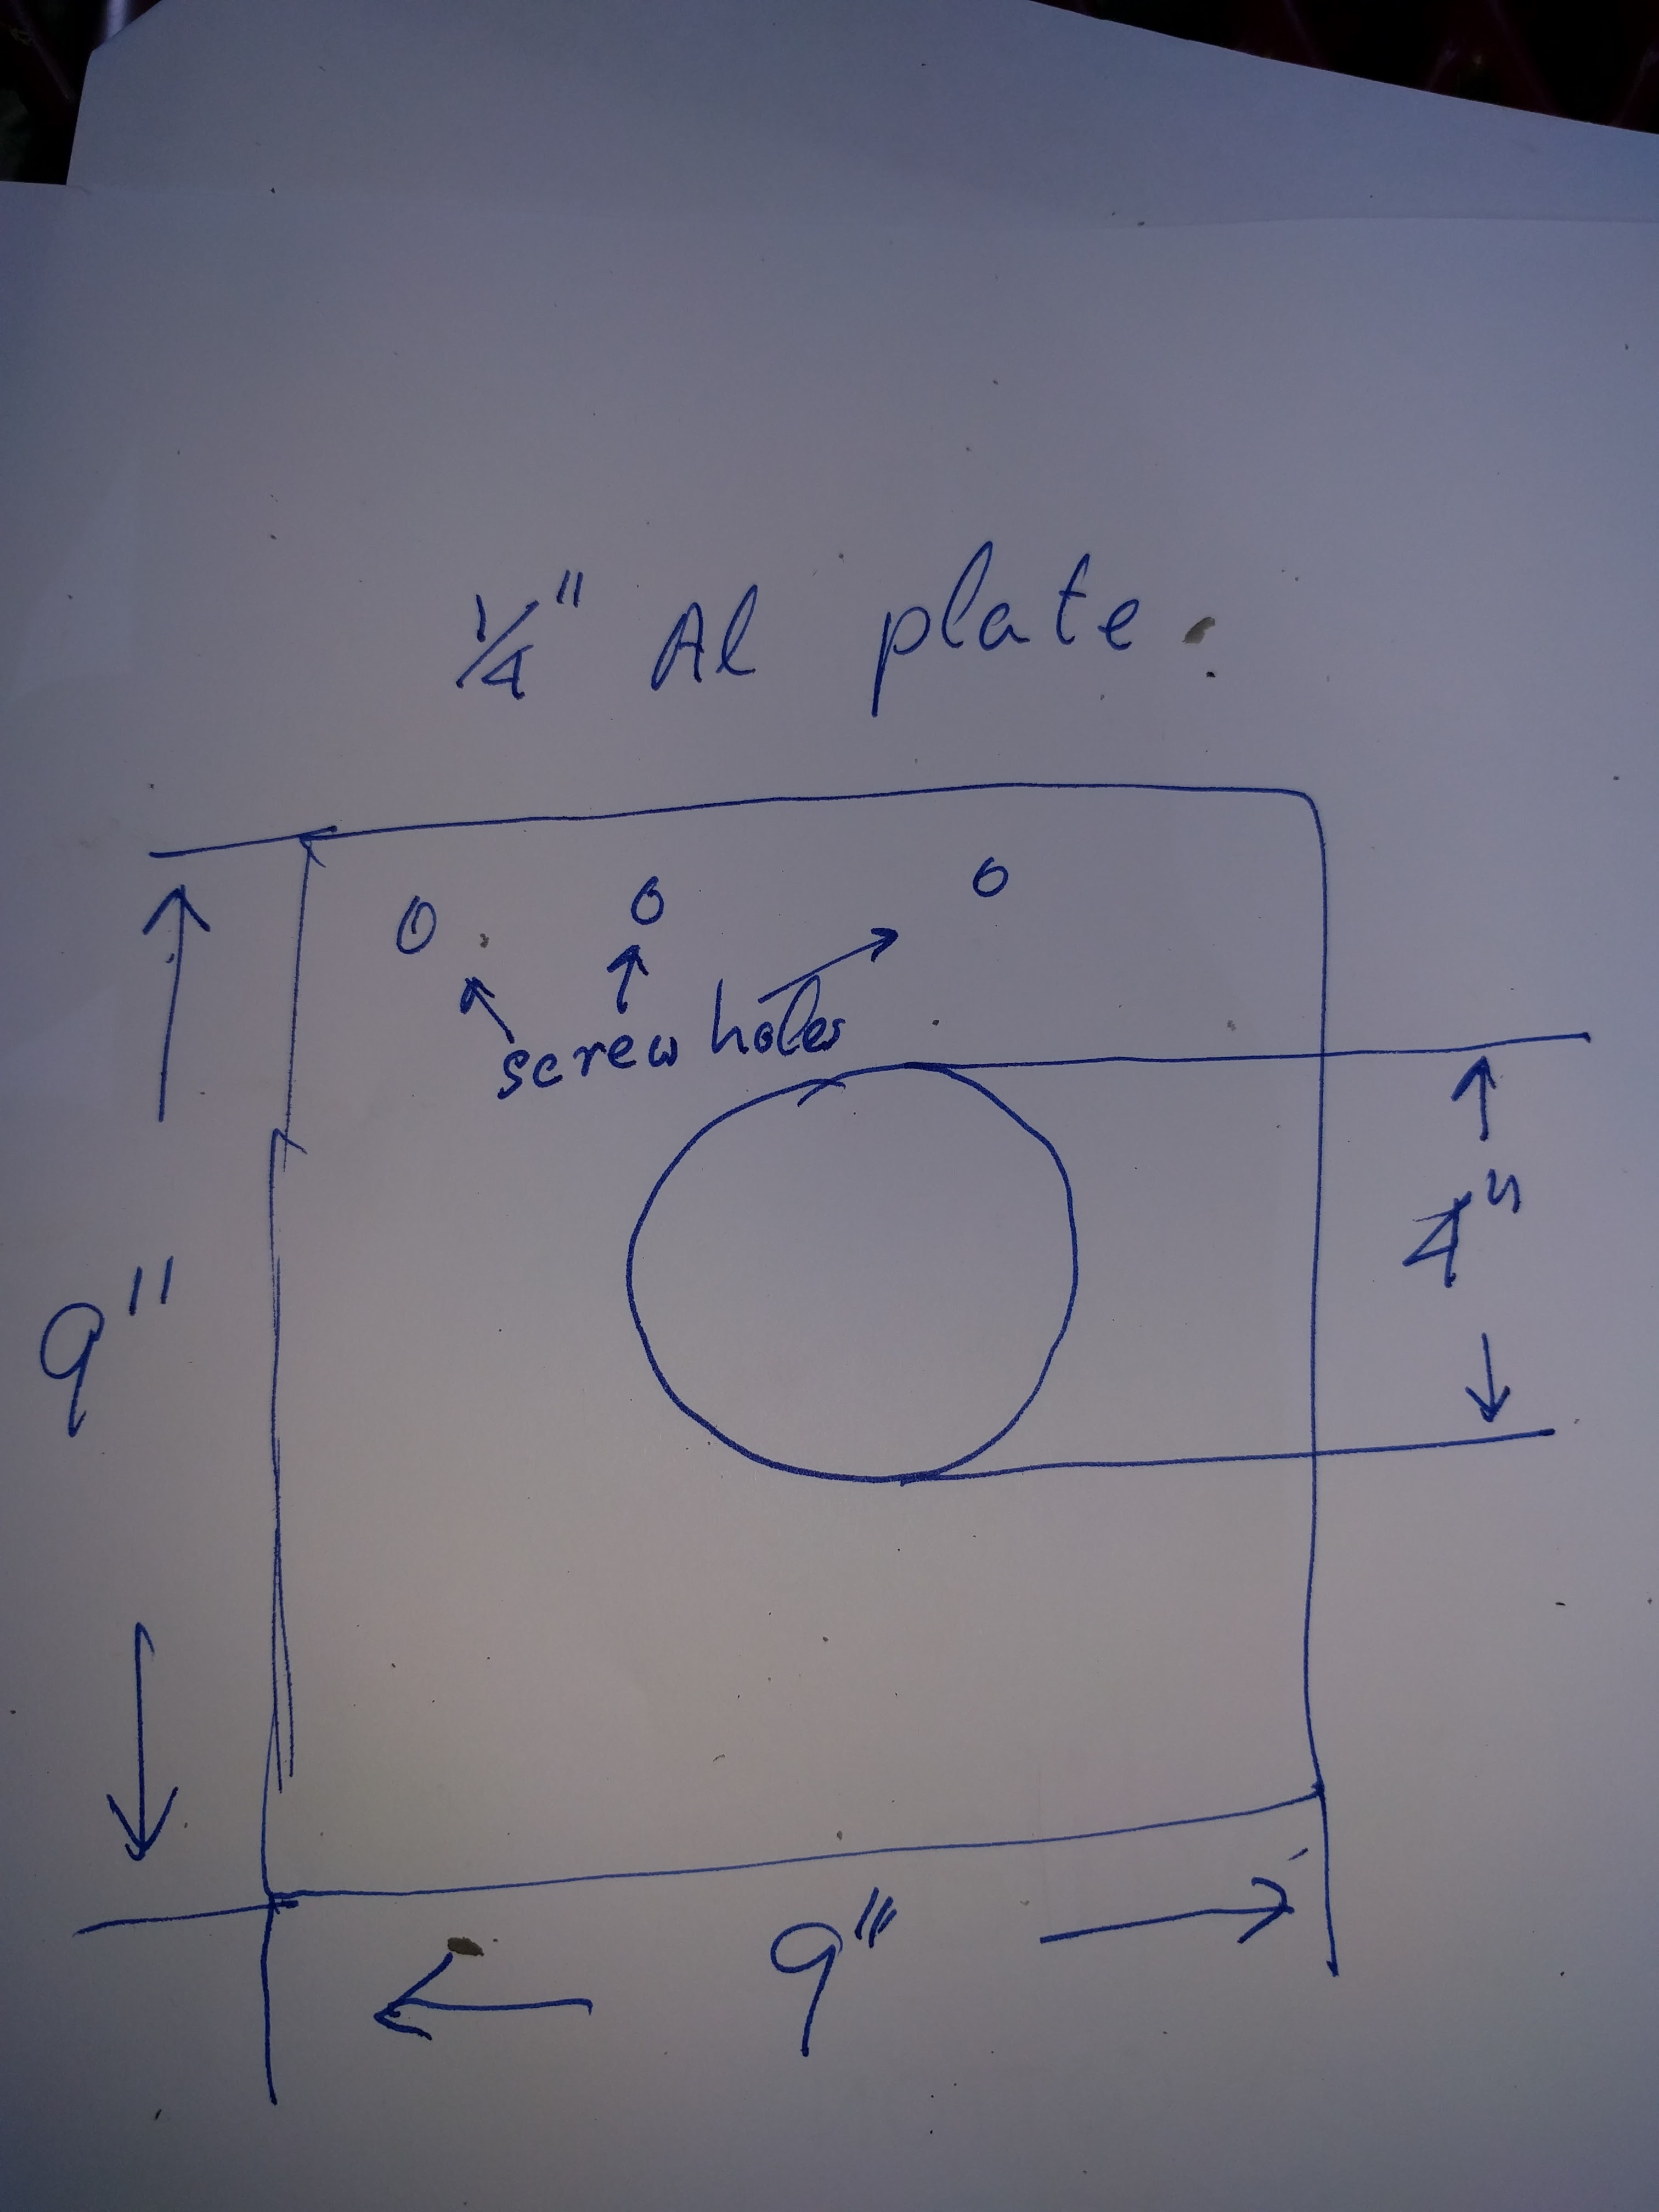 1/4" Al plate.
screw holes
4"
9"
9"